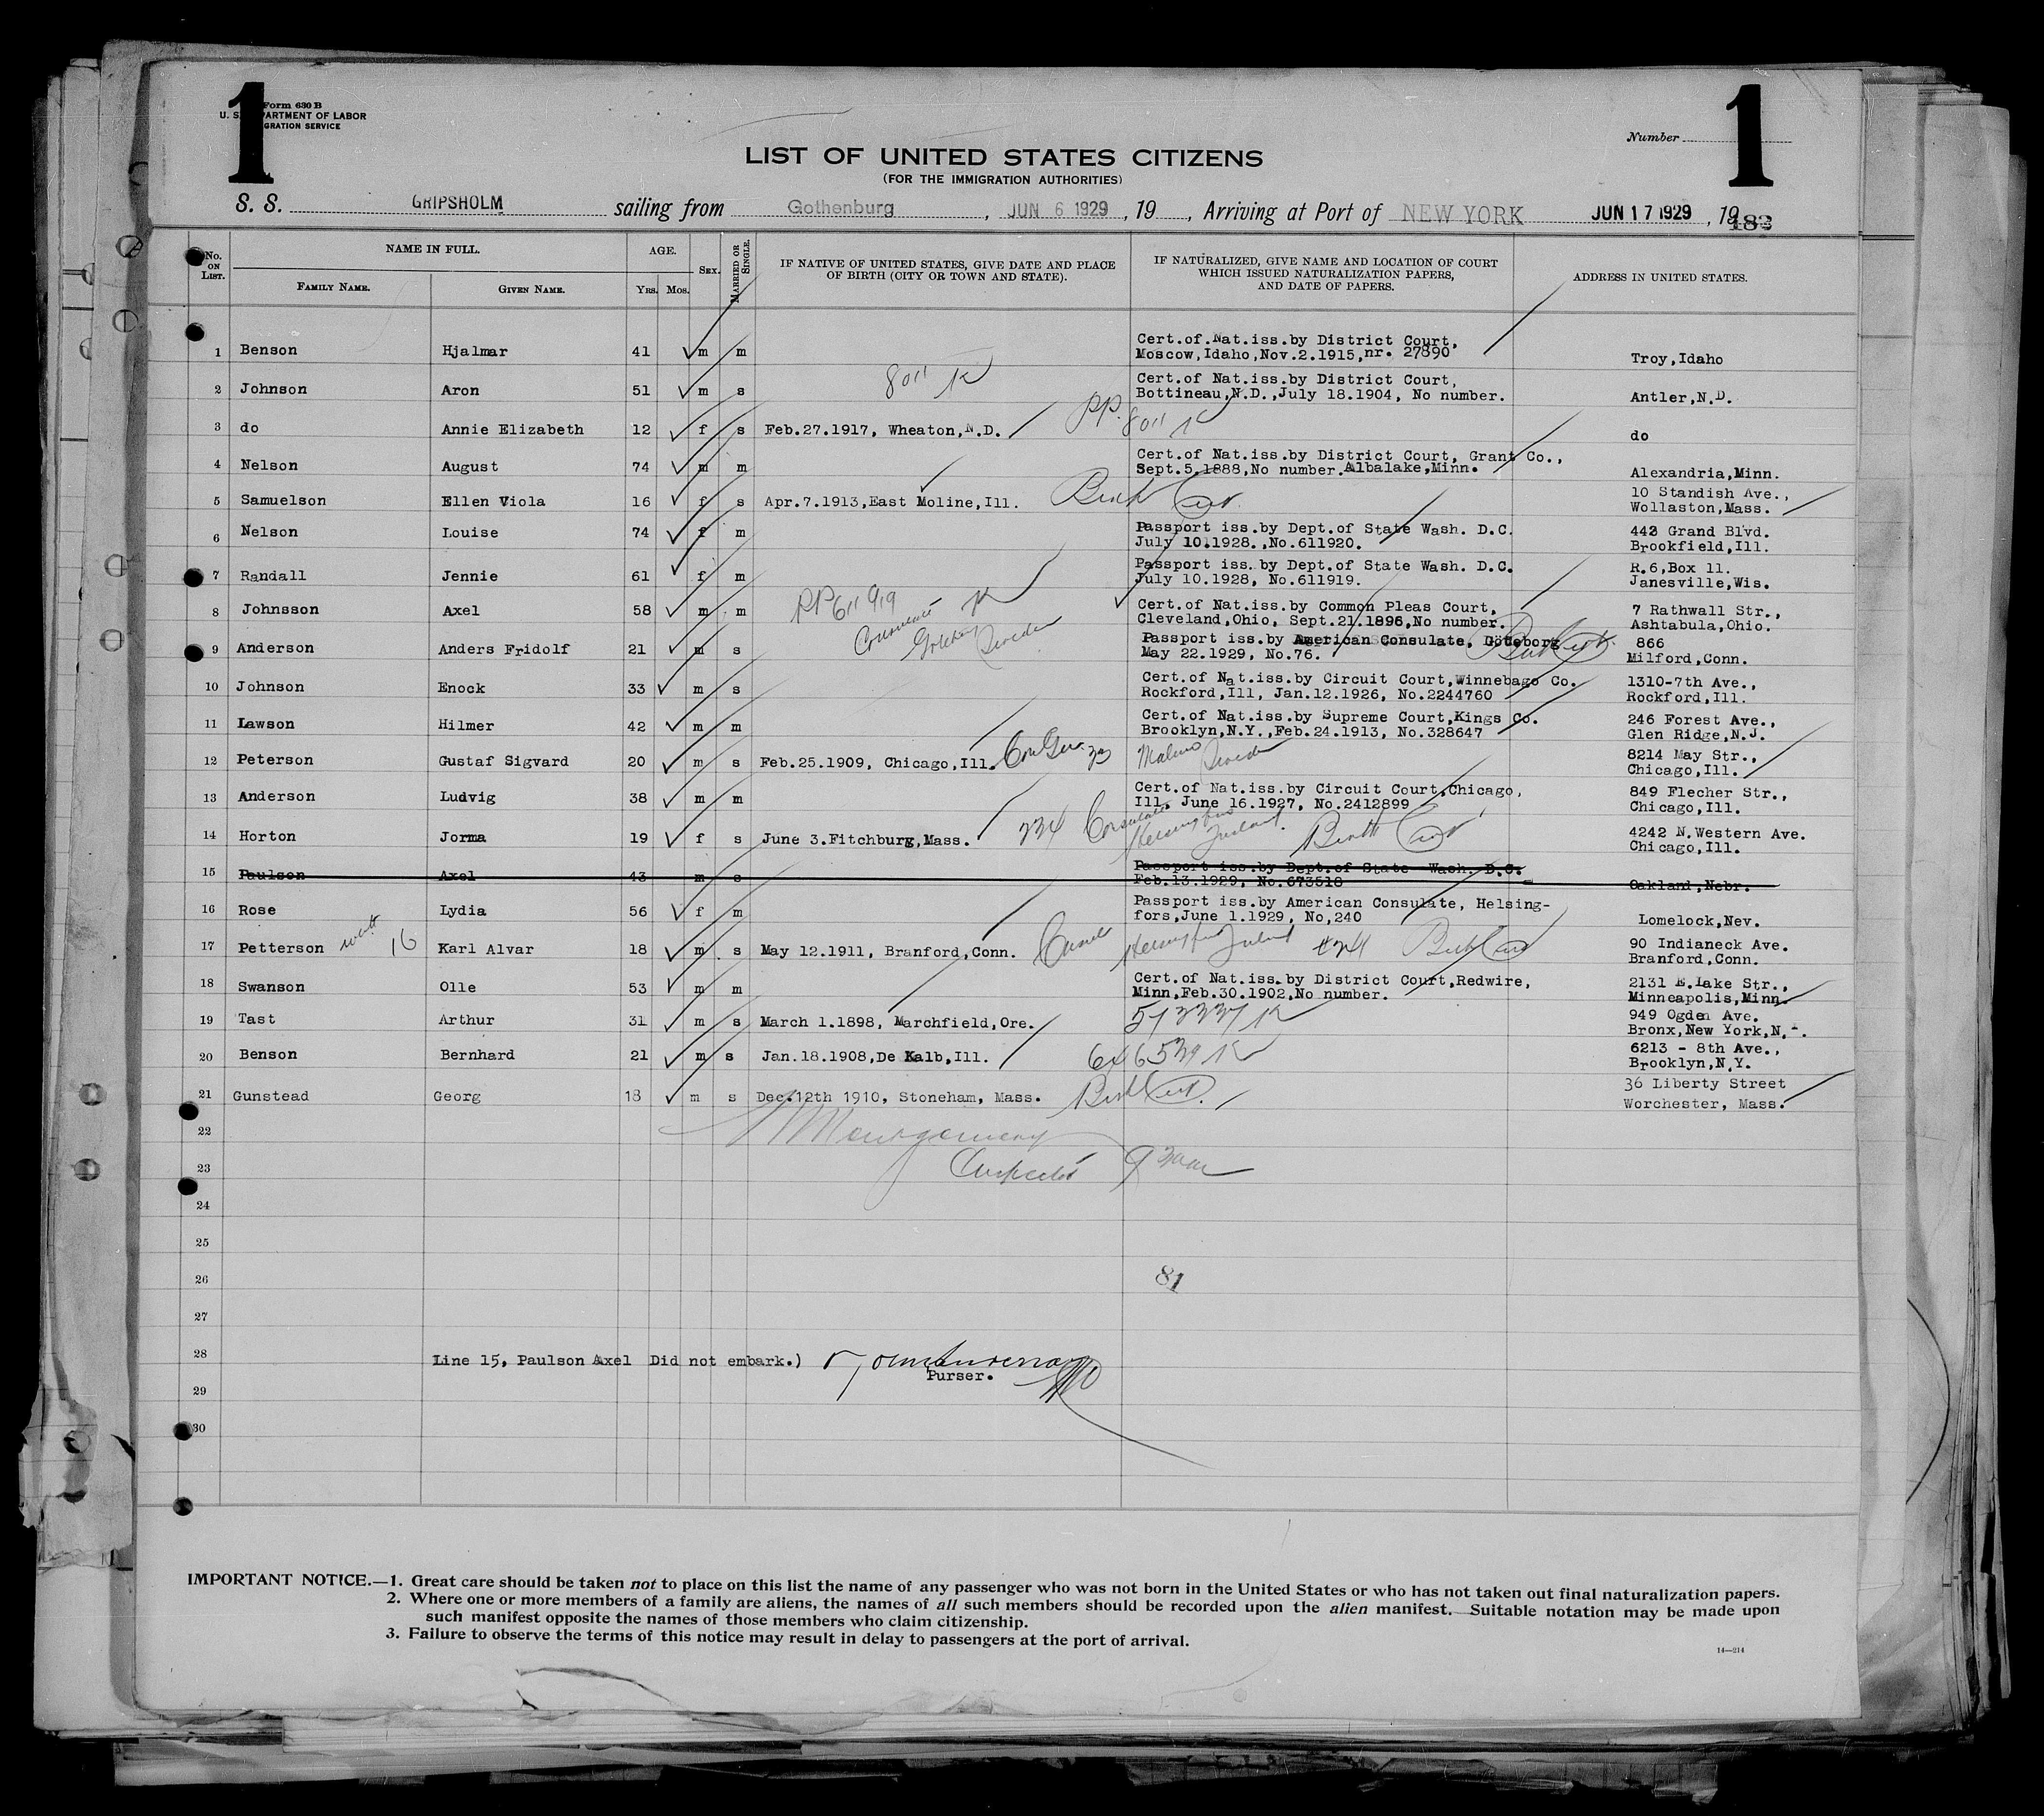 1
Form 630 B
U. S. DEPARTMENT OF LABOR
IMMIGRATION SERVICE
Number
1
LIST OF UNITED STATES CITIZENS
(FOR THE IMMIGRATION AUTHORITIES)
S. S. GRIPSHOLM sailing from Gothenburg, JUN 6 1929, 19, Arriving at Port of NEW YORK JUN 17 1929, 19
No. ON LIST.
NAME IN FULL.
FAMILY NAME.
GIVEN NAME.
AGE.
YRS. MOS.
SEX.
MARRIED OR SINGLE.
IF NATIVE OF UNITED STATES, GIVE DATE AND PLACE
OF BIRTH (CITY OR TOWN AND STATE).
IF NATURALIZED, GIVE NAME AND LOCATION OF COURT
WHICH ISSUED NATURALIZATION PAPERS,
AND DATE OF PAPERS.
ADDRESS IN UNITED STATES.
1 Benson Hjalmar 41 m m Cert.of.Nat.iss.by District Court,
Moscow,Idaho,Nov.2.1915,nr. 27890 Troy,Idaho
8011 K
2 Johnson Aron 51 m s Cert.of Nat.iss.by District Court,
Bottineau,N.D.,July 18.1904, No number. Antler,N.D.
3 do Annie Elizabeth 12 f s Feb.27.1917, Wheaton,N.D. PP. 8011 K do
4 Nelson August 74 m m Cert.of Nat.iss.by District Court, Grant Co.,
Sept.5.1888,No number.Albalake,Minn. Alexandria,Minn.
5 Samuelson Ellen Viola 16 f s Apr.7.1913,East Moline,Ill. Birth Cert. 10 Standish Ave.,
Wollaston,Mass.
6 Nelson Louise 74 f m Passport iss.by Dept.of State Wash. D.C.
July 10.1928.,No.611920. 442 Grand Blvd.
Brookfield,Ill.
7 Randall Jennie 61 f m Passport iss.by Dept.of State Wash. D.C.
July 10.1928, No.611919. R.6,Box 11.
Janesville,Wis.
PP 611919 K
8 Johnsson Axel 58 m m Cert.of Nat.iss.by Common Pleas Court,
Cleveland,Ohio, Sept.21.1896,No number. 7 Rathwall Str.,
Ashtabula,Ohio.
Sweden
9 Anderson Anders Fridolf 21 m s Passport iss.by American Consulate, Göteborg
May 22.1929, No.76. Birth Cert. 866
Milford,Conn.
10 Johnson Enock 33 m s Cert.of Nat.iss.by Circuit Court,Winnebago Co.
Rockford,Ill, Jan.12.1926, No.2244760 1310-7th Ave.,
Rockford,Ill.
11 Lawson Hilmer 42 m m Cert.of Nat.iss.by Supreme Court,Kings Co.
Brooklyn,N.Y.,Feb.24.1913, No.328647 246 Forest Ave.,
Glen Ridge,N.J.
12 Peterson Gustaf Sigvard 20 m s Feb.25.1909, Chicago,Ill. Malmo Sweden 8214 May Str.,
Chicago,Ill.
13 Anderson Ludvig 38 m m Cert.of Nat.iss.by Circuit Court,Chicago,
Ill. June 16.1927, No.2412899 849 Flecher Str.,
Chicago,Ill.
14 Horton Jorma 19 f s June 3.Fitchburg,Mass. 234 Consulate Helsingfors Finland. Birth Cert 4242 N.Western Ave.
Chicago,Ill.
15 Paulson Axel 43 m s Passport iss.by Dept.of State Wash. D.C.
Feb.13.1929, No.673518 Oakland,Nebr.
16 Rose Lydia 56 f m Passport iss.by American Consulate, Helsing-
fors,June 1.1929, No,240 Lomelock,Nev.
17 Petterson 16 Karl Alvar 18 m s May 12.1911, Branford,Conn. Helsingfors Finland Birth Cert 90 Indianeck Ave.
Branford,Conn.
18 Swanson Olle 53 m m Cert.of Nat.iss.by District Court,Redwire,
Minn,Feb.30.1902,No number. 2131 E.Lake Str.,
Minneapolis,Minn.
19 Tast Arthur 31 m s March 1.1898, Marchfield,Ore. 573337 K 949 Ogden Ave.
Bronx,New York,N.
20 Benson Bernhard 21 m s Jan.18.1908,De Kalb,Ill. 646539 K 6213 - 8th Ave.,
Brooklyn,N.Y.
21 Gunstead Georg 18 m s Dec.12th 1910, Stoneham, Mass. Birth Cert. 36 Liberty Street
Worchester, Mass.
22 Montgomery
23 Inspector
24
25
26 81
27
28 Line 15, Paulson Axel Did not embark.)
Purser.
29
30
IMPORTANT NOTICE.—1. Great care should be taken not to place on this list the name of any passenger who was not born in the United States or who has not taken out final naturalization papers.
2. Where one or more members of a family are aliens, the names of all such members should be recorded upon the alien manifest. Suitable notation may be made upon
such manifest opposite the names of those members who claim citizenship.
3. Failure to observe the terms of this notice may result in delay to passengers at the port of arrival.
14—214